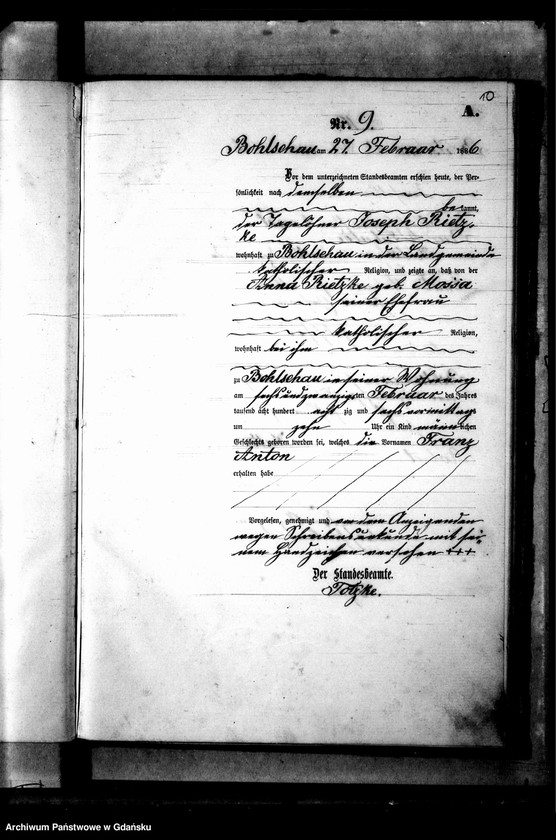 10
A.
Nr. 9.
Bohlschau am 27. Februar 1886
Vor dem unterzeichneten Standesbeamten erschien heute, der Per-
sönlichkeit nach demselben
bekannt,
der Tagelöhner Joseph Rietz-
ke
wohnhaft zu Bohlschau in der Landgemeinde
katholischer Religion, und zeigte an, daß von der
Anna Rietzke geb. Mossa
seiner Ehefrau
katholischer Religion,
wohnhaft bei ihm
zu Bohlschau in seiner Wohnung
am sechs und zwanzigsten Februar des Jahres
tausend acht hundert acht zig und sechs vormittags
um zehn Uhr ein Kind männlichen
Geschlechts geboren worden sei, welches die Vornamen Franz
Anton
erhalten habe
Vorgelesen, genehmigt und von dem Anzeigenden
wegen Schreibensunkunde mit sei-
nem Handzeichen versehen +++
Der Standesbeamte.
Totzke.
Archiwum Państwowe w Gdańsku